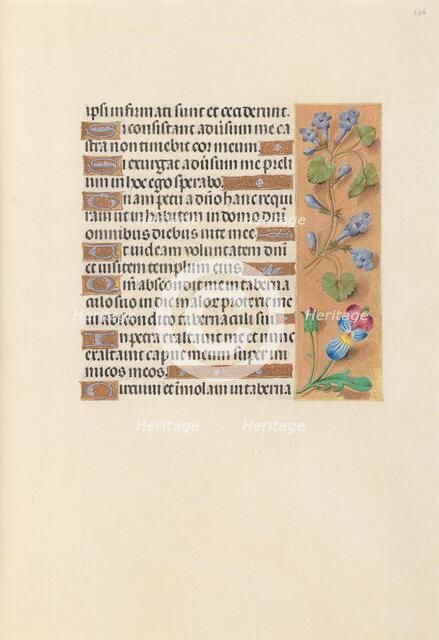 286
ipsi infirmati sunt et ceciderunt.
Si consistant adūsum me ca
stra non timebit cor meum.
Si exurgat adūsum me preli
um in hoc ego sperabo.
Unam petii a dn̄o hanc requi
ram ut inhabitem in domo dn̄i
omnibus diebus uite mee.
Ut uideam voluntatem dn̄i
et uisitem templum eius.
Qm̄ abscondit me in taberna
culo suo in die malor̄ protexit me
in abscondito tabernaculi sui.
In petra exaltauit me et nunc
exaltauit caput meum super ini
micos meos.
Circuiui et imolaui in taberna
heritage
Heritage Heritage